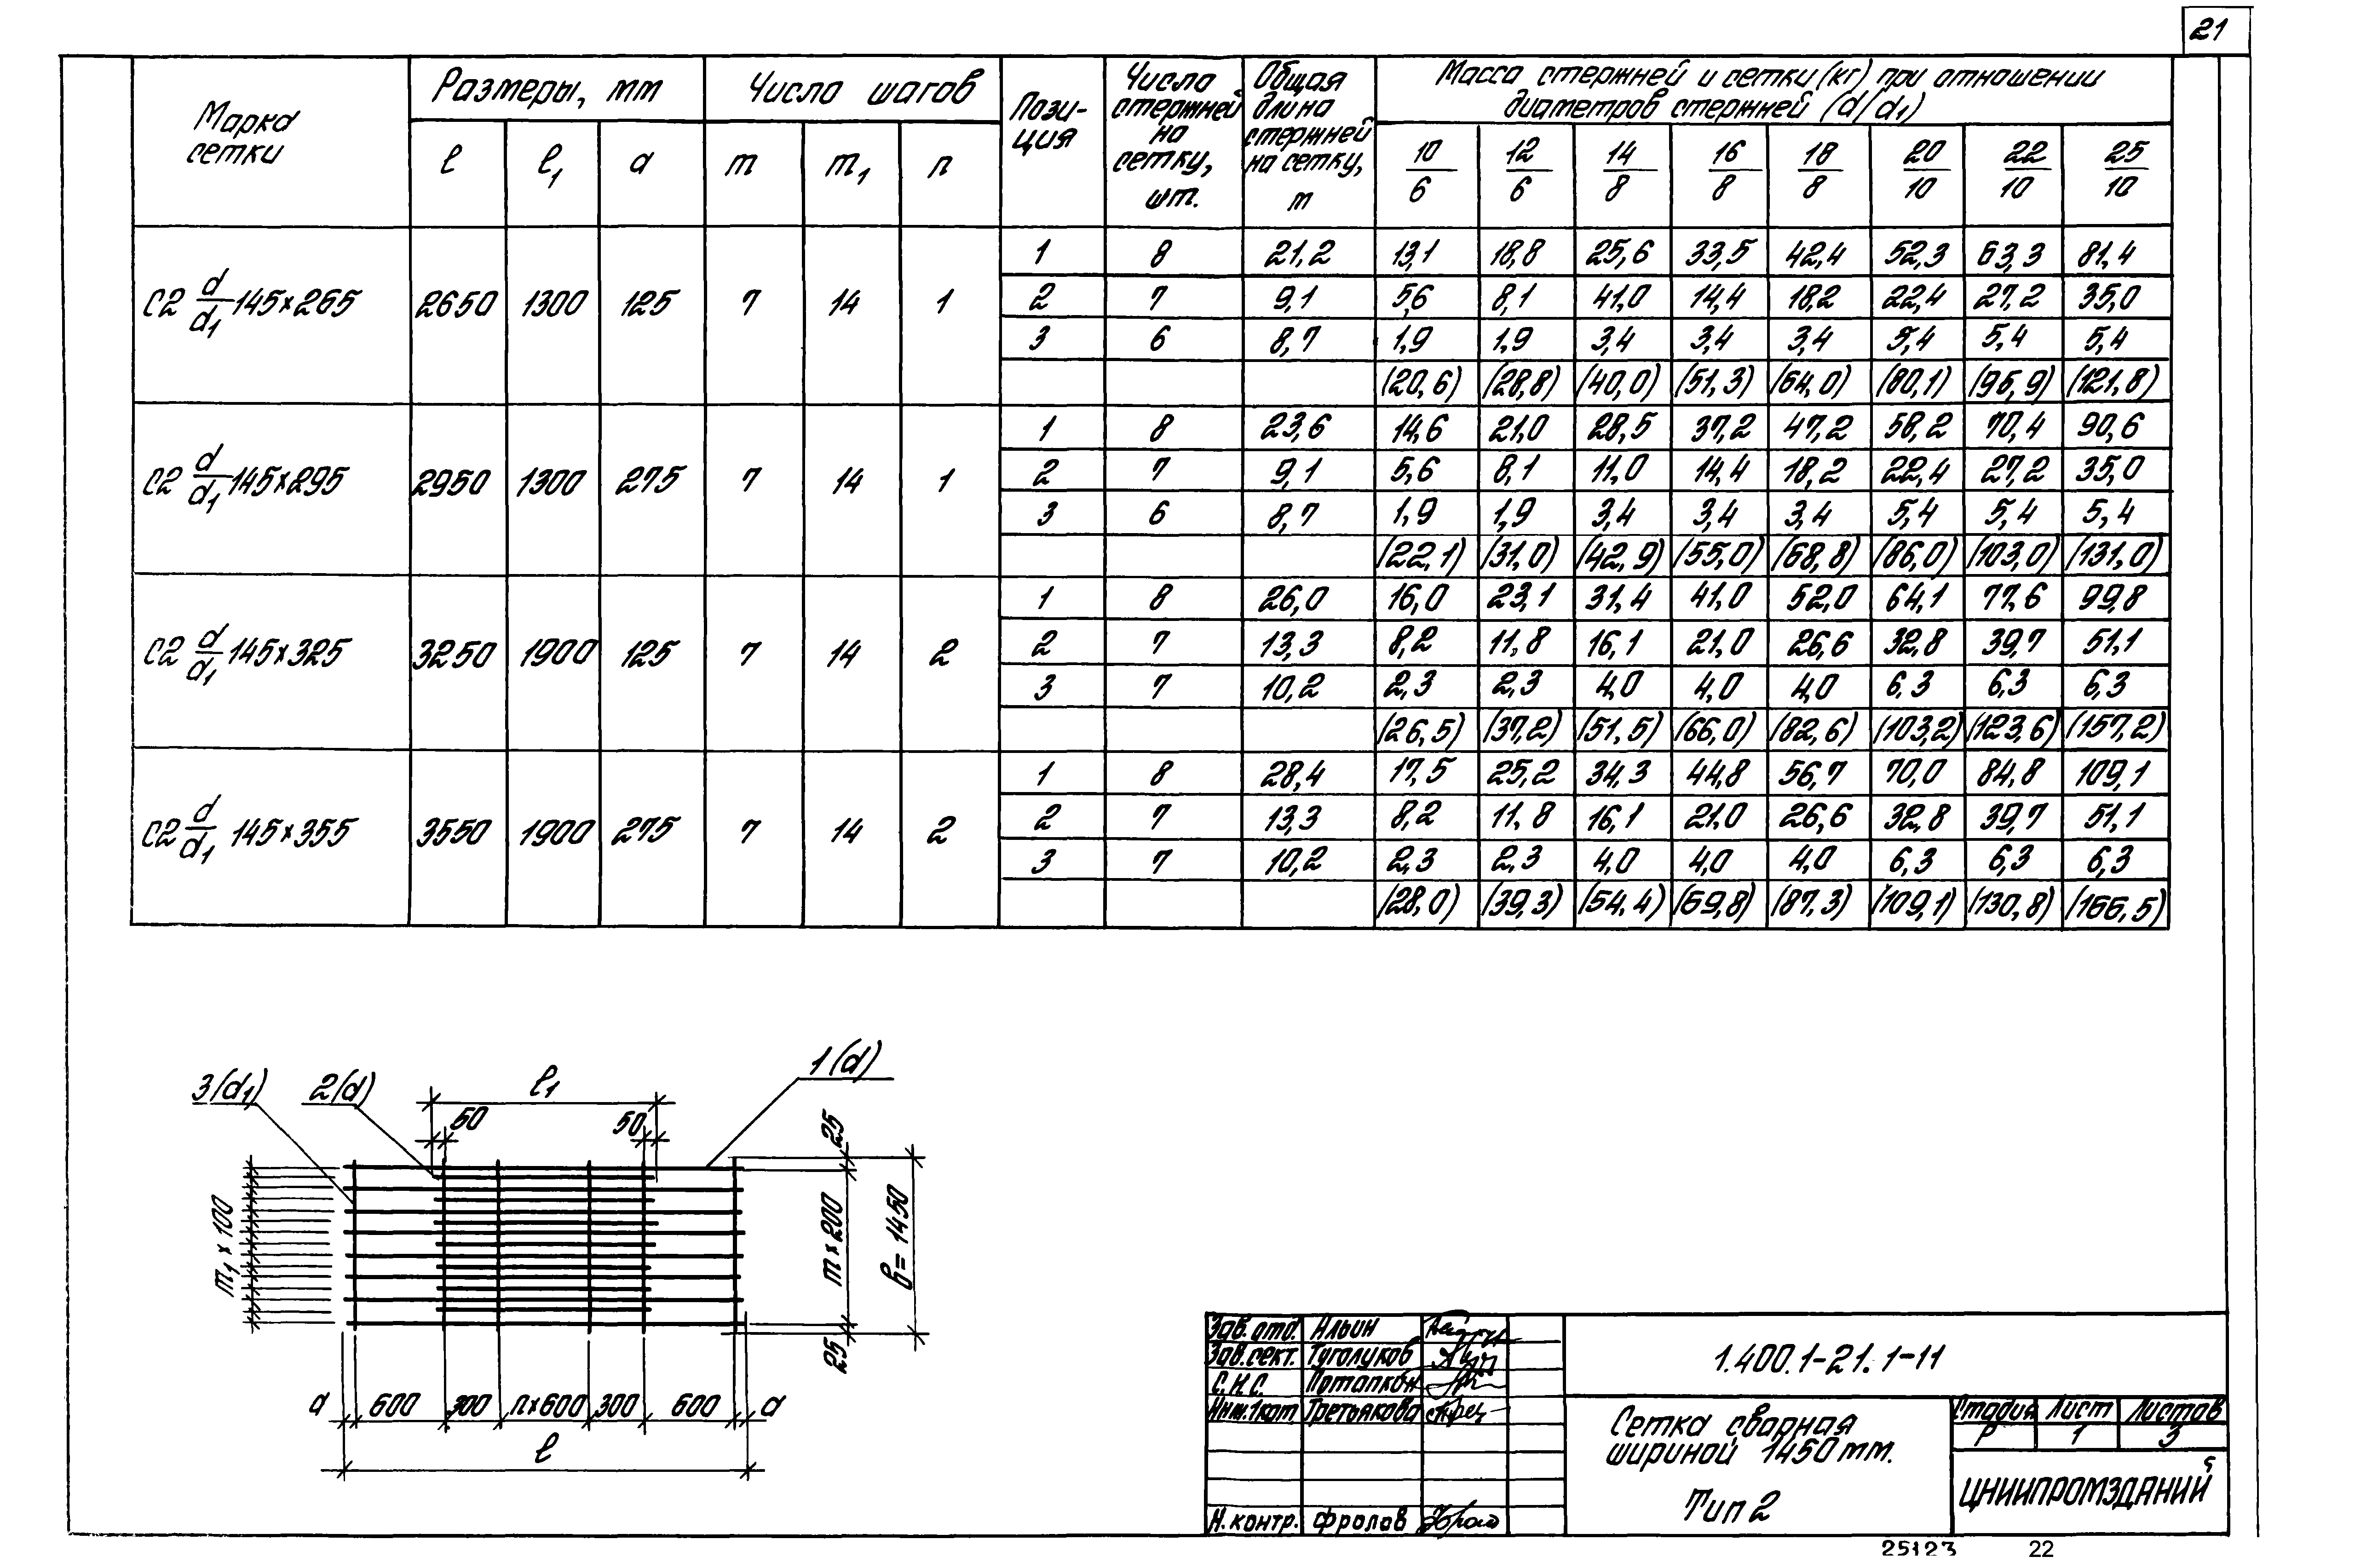 21
Марка сетки | Размеры, мм | Число шагов | Пози-ция | Число стержней на сетку, шт. | Общая длина стержней на сетку, м | Масса стержней и сетки (кг) при отношении диаметров стержней (d/d1)
l | l1 | a | m | m1 | n | 10/6 | 12/6 | 14/8 | 16/8 | 18/8 | 20/10 | 22/10 | 25/10
С2 d/d1 145×265 | 2650 | 1300 | 125 | 7 | 14 | 1
1 | 8 | 21,2 | 13,1 | 18,8 | 25,6 | 33,5 | 42,4 | 52,3 | 63,3 | 81,4
2 | 7 | 9,1 | 5,6 | 8,1 | 41,0 | 14,4 | 18,2 | 22,4 | 27,2 | 35,0
3 | 6 | 8,7 | 1,9 | 1,9 | 3,4 | 3,4 | 3,4 | 5,4 | 5,4 | 5,4
(20,6) | (28,8) | (40,0) | (51,3) | (64,0) | (80,1) | (95,9) | (121,8)
С2 d/d1 145×295 | 2950 | 1300 | 275 | 7 | 14 | 1
1 | 8 | 23,6 | 14,6 | 21,0 | 28,5 | 37,2 | 47,2 | 58,2 | 70,4 | 90,6
2 | 7 | 9,1 | 5,6 | 8,1 | 11,0 | 14,4 | 18,2 | 22,4 | 27,2 | 35,0
3 | 6 | 8,7 | 1,9 | 1,9 | 3,4 | 3,4 | 3,4 | 5,4 | 5,4 | 5,4
(22,1) | (31,0) | (42,9) | (55,0) | (68,8) | (86,0) | (103,0) | (131,0)
С2 d/d1 145×325 | 3250 | 1900 | 125 | 7 | 14 | 2
1 | 8 | 26,0 | 16,0 | 23,1 | 31,4 | 41,0 | 52,0 | 64,1 | 77,6 | 99,8
2 | 7 | 13,3 | 8,2 | 11,8 | 16,1 | 21,0 | 26,6 | 32,8 | 39,7 | 51,1
3 | 7 | 10,2 | 2,3 | 2,3 | 4,0 | 4,0 | 4,0 | 6,3 | 6,3 | 6,3
(26,5) | (37,2) | (51,5) | (66,0) | (82,6) | (103,2) | (123,6) | (157,2)
С2 d/d1 145×355 | 3550 | 1900 | 275 | 7 | 14 | 2
1 | 8 | 28,4 | 17,5 | 25,2 | 34,3 | 44,8 | 56,7 | 70,0 | 84,8 | 109,1
2 | 7 | 13,3 | 8,2 | 11,8 | 16,1 | 21,0 | 26,6 | 32,8 | 39,7 | 51,1
3 | 7 | 10,2 | 2,3 | 2,3 | 4,0 | 4,0 | 4,0 | 6,3 | 6,3 | 6,3
(28,0) | (39,3) | (54,4) | (69,8) | (87,3) | (109,1) | (130,8) | (166,5)
3(d1) 2(d) l1 1(d)
50 50 25
m1 × 100
m × 200
b = 1450
25
a 600 300 n×600 300 600 a
l
Зав. отд. Ильин
Зав. сект. Туголуков
С.н.с. Потапкин
Инж.1кат. Третьякова
Н. контр. Фролов
1.400.1-21.1-11
Сетка сварная
шириной 1450 мм.
Тип 2
Стадия Лист Листов
Р 1 3
ЦНИИПРОМЗДАНИЙ
25123 22